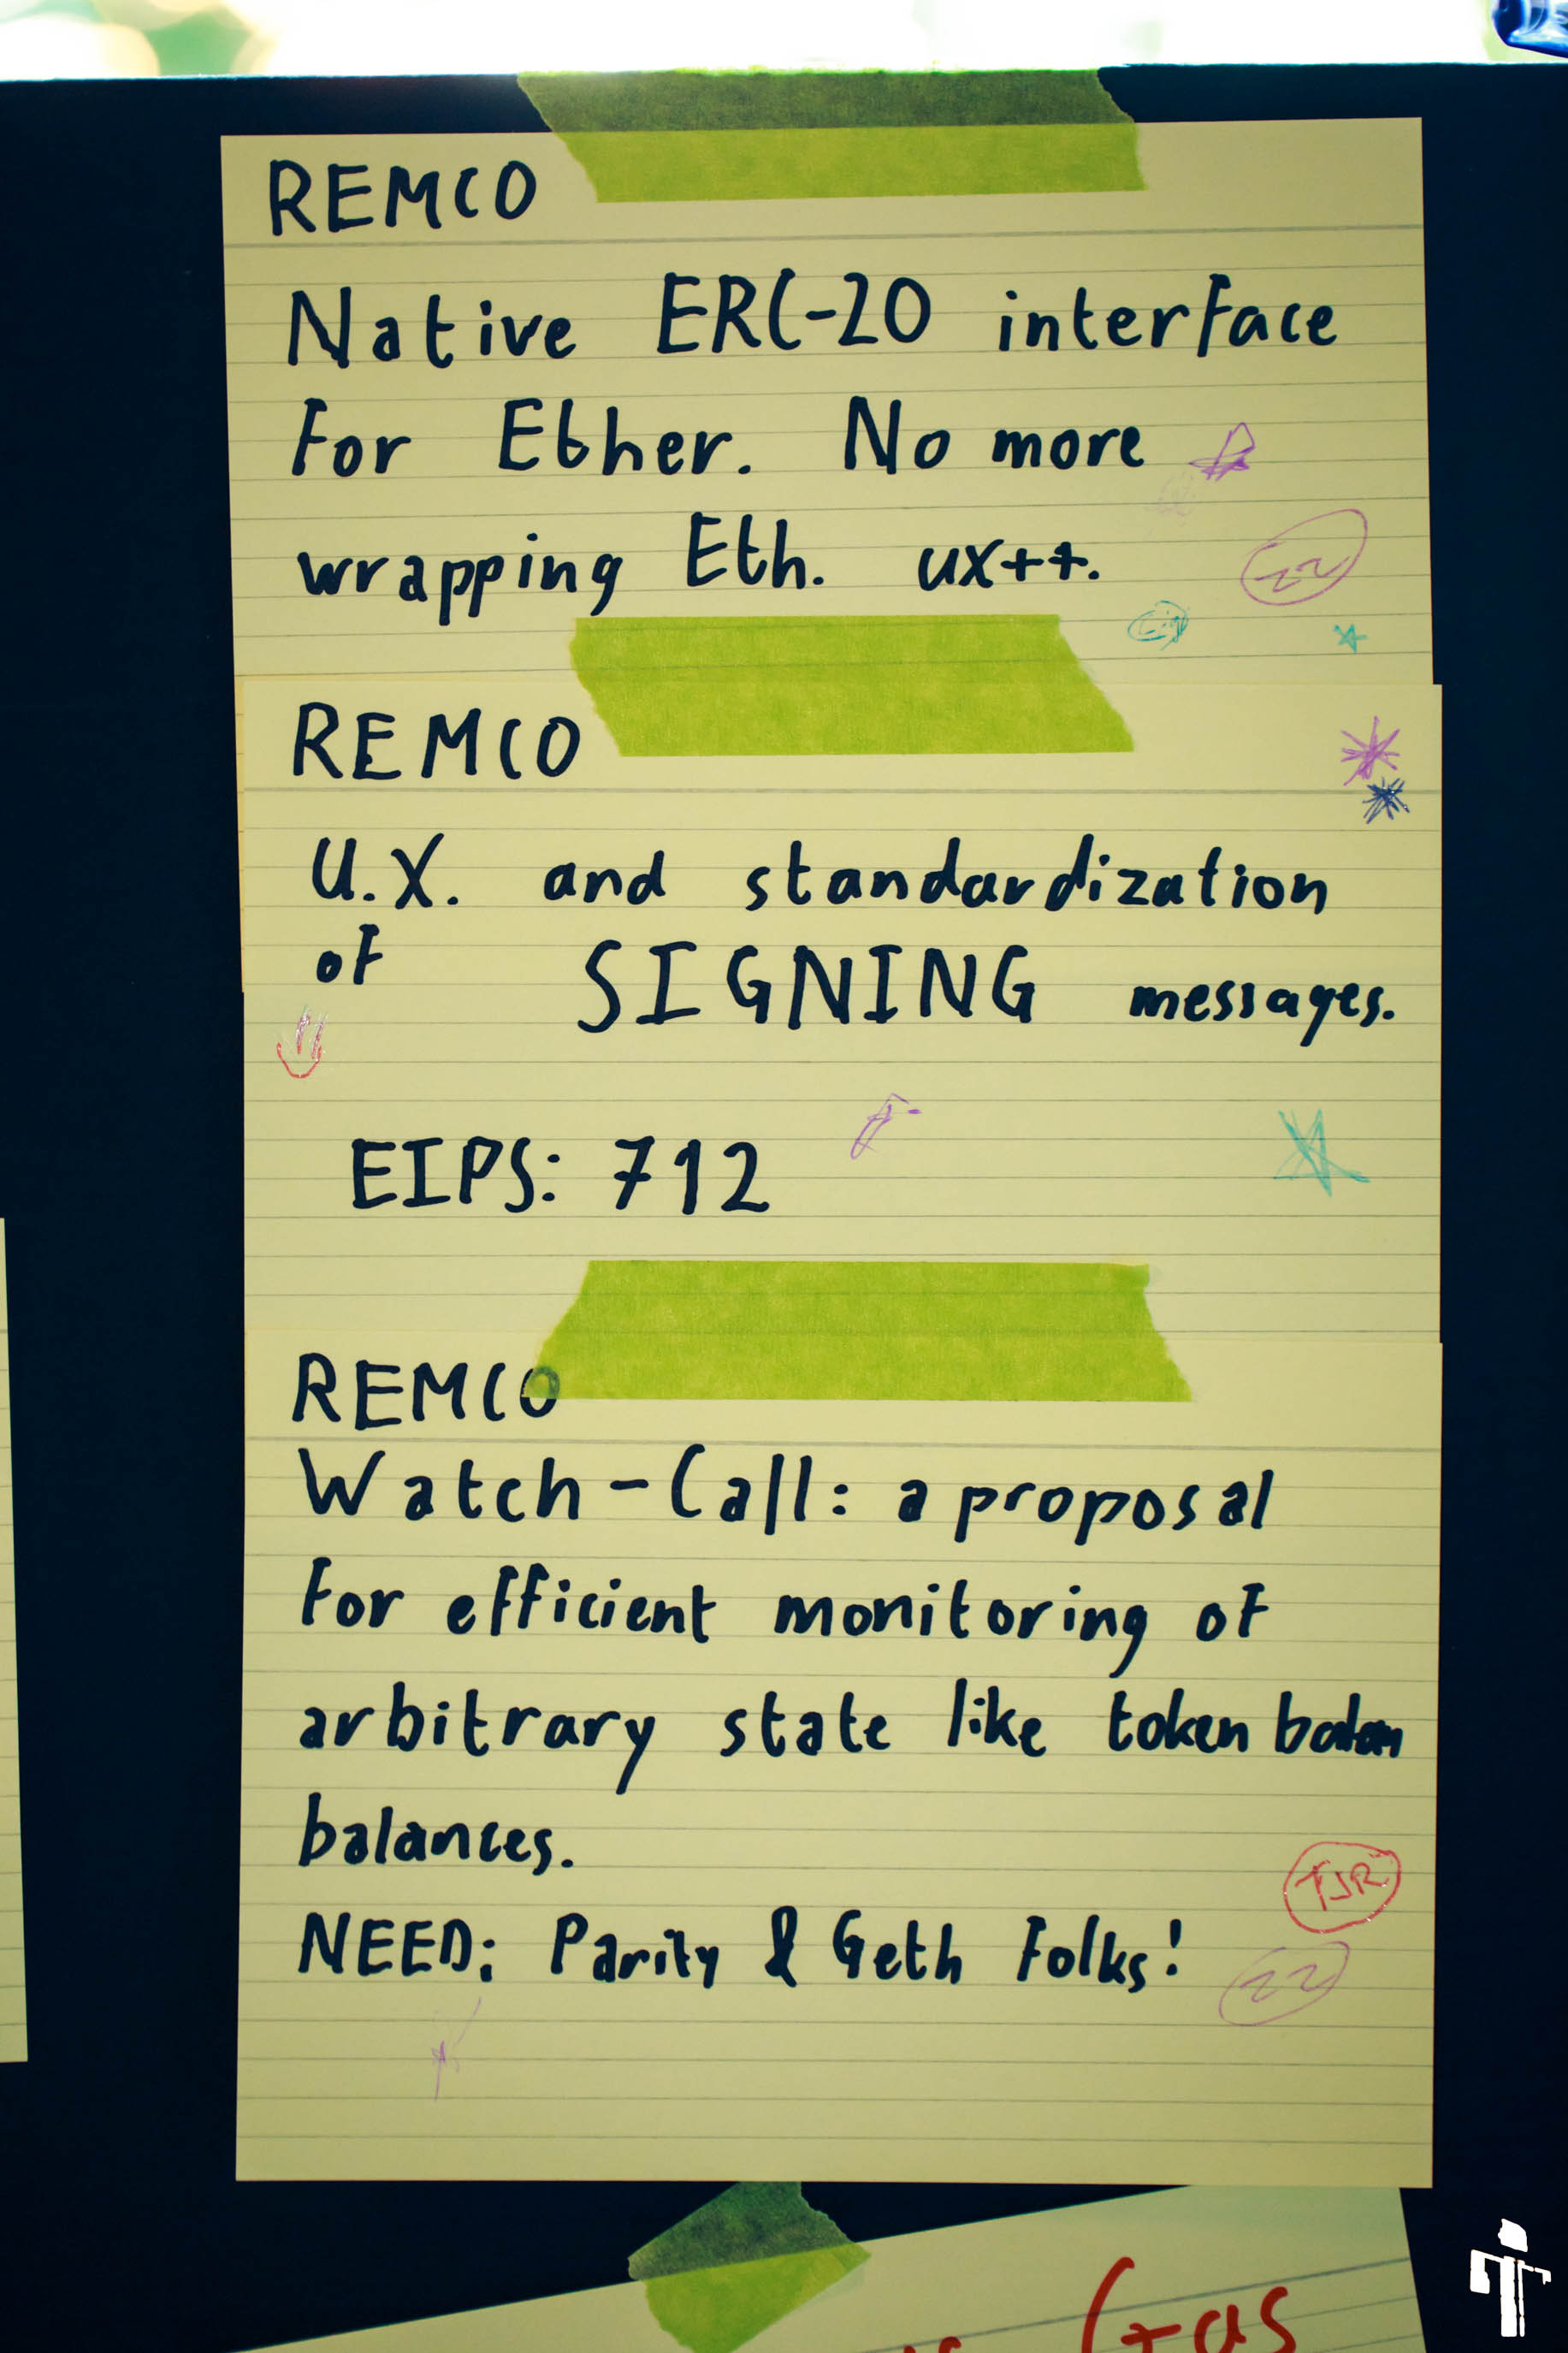 REMCO
Native ERC-20 interface
for Ether. No more
wrapping Eth. ux++.
REMCO
U.X. and standardization
of SIGNING messages.
EIPS: 712
REMCO
Watch-Call: a proposal
for efficient monitoring of
arbitrary state like token
balances.
TJR
NEED: Parity & Geth folks!
Gas